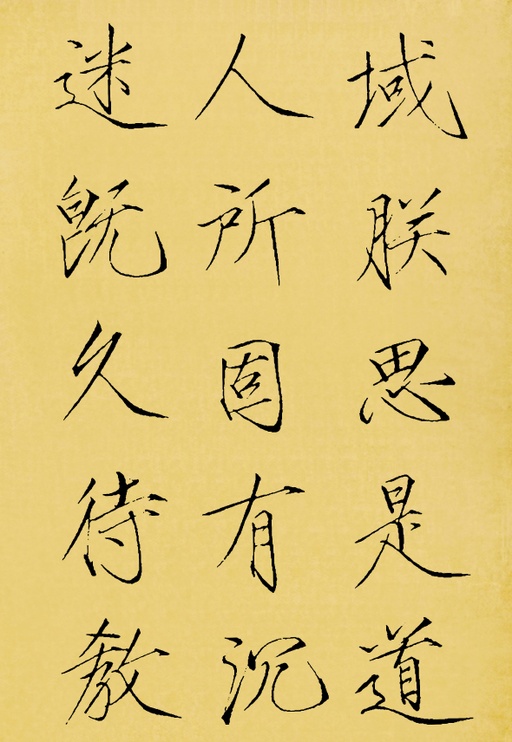 域朕思是道
人所固有沉
迷既久待教